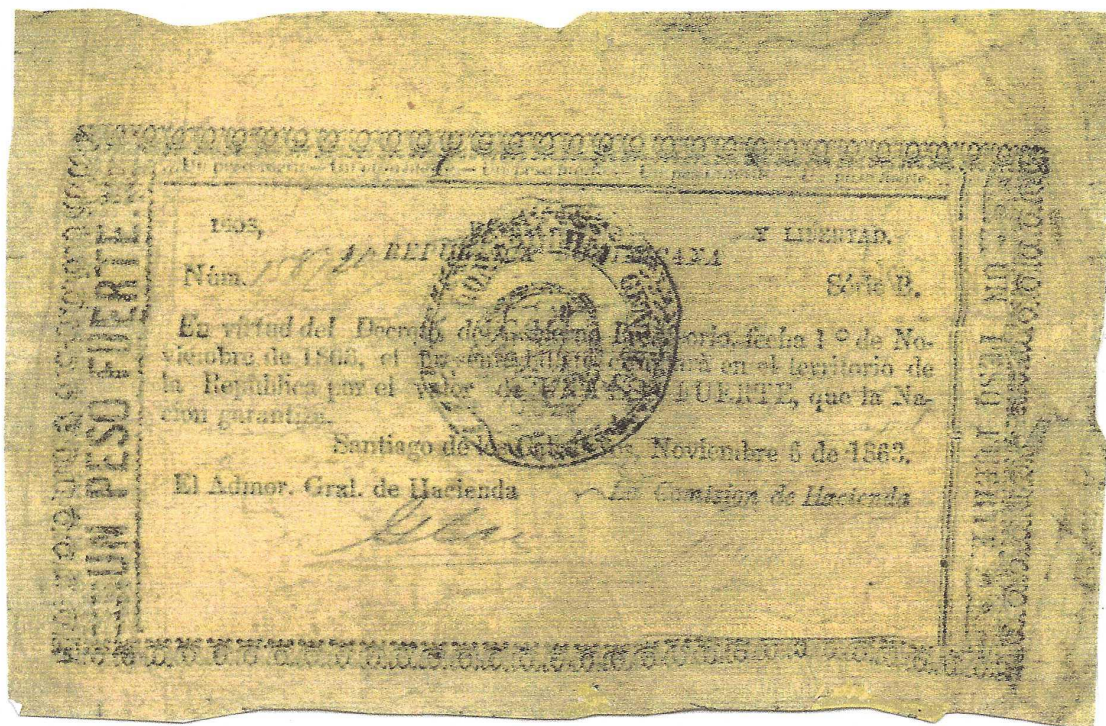 Un peso fuerte — Un peso fuerte — Un peso fuerte — Un peso fuerte — Un peso fuerte
UN PESO FUERTE
1863, Y LIBERTAD.
REPUBLICA DOMINICANA
Núm. Série B.
En virtud del Decreto del Gobierno Provisorio, fecha 1º de No-
viembre de 1863, el presente billete circulará en el territorio de
la República por el valor de UN PESO FUERTE, que la Na-
cion garantiza.
Santiago de los Caballeros, Noviembre 6 de 1863.
El Admor. Gral. de Hacienda La Comision de Hacienda
UN PESO FUERTE